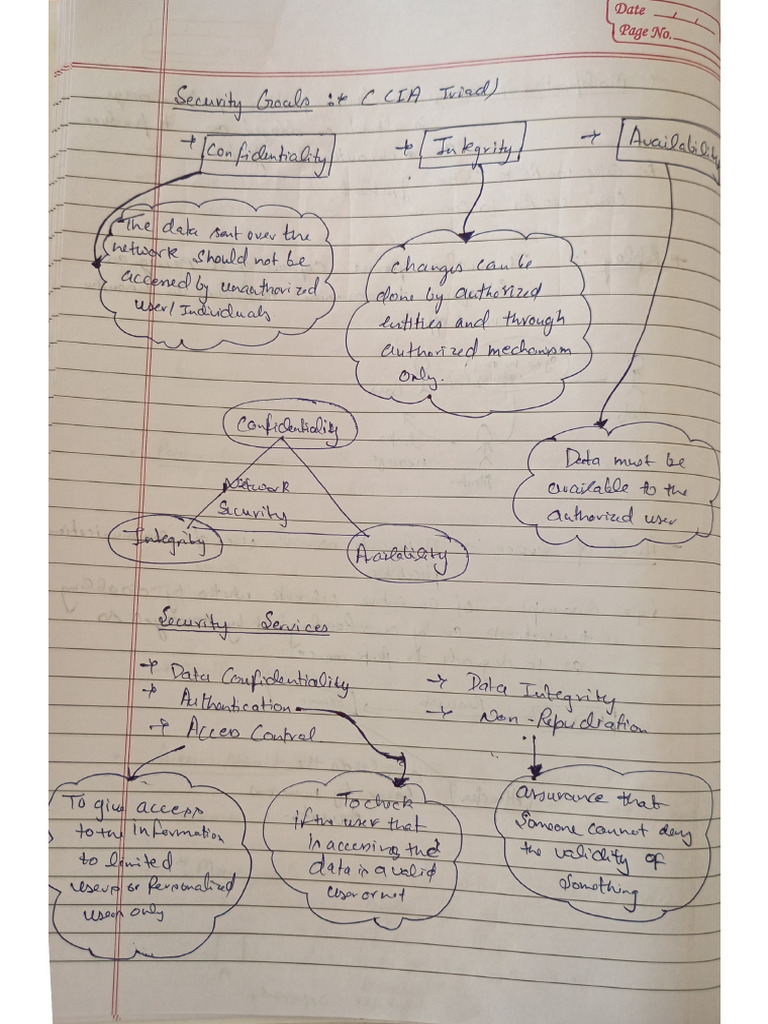 Date
Page No.
Security Goals :→ (CIA Triad)
→ Confidentiality
→ Integrity
→ Availability
The data sent over the
network should not be
accessed by unauthorized
user/Individuals
Changes can be
done by authorized
entities and through
authorized mechanism
only.
Data must be
available to the
authorized user
Confidentiality
Network
Security
Integrity
Availability
Security Services
→ Data Confidentiality
→ Authentication
→ Access Control
→ Data Integrity
→ Non-Repudiation
To give access
to the information
to limited
users or Personalized
users only
To check
if the user that
is accessing the
data is a valid
user or not
assurance that
Someone cannot deny
the validity of
Something